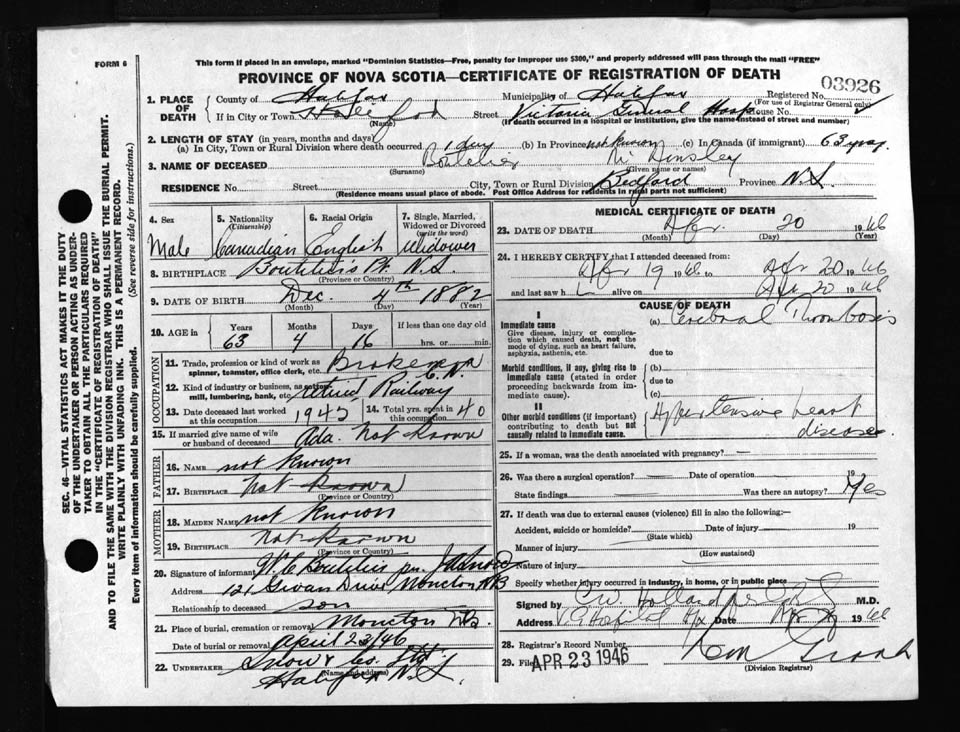 This form if placed in an envelope, marked "Dominion Statistics—Free, penalty for improper use $300," and properly addressed will pass through the mail "FREE"
FORM 6
PROVINCE OF NOVA SCOTIA—CERTIFICATE OF REGISTRATION OF DEATH
03926
1. PLACE OF DEATH County of Halifax Municipality of Halifax Registered No.
(For use of Registrar General only)
If in City or Town Halifax Street Victoria General Hosp House No.
(Name) (If death occurred in a hospital or institution, give the name instead of street and number)
2. LENGTH OF STAY (in years, months and days)
(a) In City, Town or Rural Division where death occurred 1 day (b) In Province not known (c) In Canada (if immigrant) 63 yrs.
3. NAME OF DECEASED Boutilier Hinsley
(Surname) (Given name or names)
RESIDENCE No. Street City, Town or Rural Division Bedford Province N.S.
(Residence means usual place of abode. Post Office Address for residents in rural parts not sufficient)
SEC. 46—VITAL STATISTICS ACT MAKES IT THE DUTY
OF THE UNDERTAKER OR PERSON ACTING AS UNDER-
TAKER TO OBTAIN ALL THE PARTICULARS REQUIRED
IN THE "CERTIFICATE OF REGISTRATION OF DEATH"
AND TO FILE THE SAME WITH THE DIVISION REGISTRAR WHO SHALL ISSUE THE BURIAL PERMIT.
WRITE PLAINLY WITH UNFADING INK. THIS IS A PERMANENT RECORD.
Every item of information should be carefully supplied. (See reverse side for instructions.)
4. Sex 5. Nationality 6. Racial Origin 7. Single, Married,
(Citizenship) Widowed or Divorced
(write the word)
Male Canadian English Widower
8. BIRTHPLACE Boutilier's Pt. N.S.
(Province or Country)
9. DATE OF BIRTH Dec. 4th 1882
(Month) (Day) (Year)
10. AGE in Years Months Days If less than one day old
63 4 16 hrs. or min.
OCCUPATION
11. Trade, profession or kind of work as Brakeman
spinner, teamster, office clerk, etc.
12. Kind of industry or business, as cotton C.N.
mill, lumbering, bank, etc. Railway
13. Date deceased last worked 1945 14. Total yrs. spent in 40
at this occupation this occupation
15. If married give name of wife Ada. Not known
or husband of deceased
FATHER
16. NAME not known
17. BIRTHPLACE Not known
(Province or Country)
MOTHER
18. MAIDEN NAME not known
19. BIRTHPLACE Not known
(Province or Country)
20. Signature of informant W.C. Boutilier per J A Snow
Address 121 Drive Moncton NB
Relationship to deceased son
21. Place of burial, cremation or removal Moncton N.B.
Date of burial or removal April 23/46
22. UNDERTAKER Snow & Co. Ltd.
(Name and address)
Halifax N.S.
MEDICAL CERTIFICATE OF DEATH
23. DATE OF DEATH Apr. 20 1946
(Month) (Day) (Year)
24. I HEREBY CERTIFY that I attended deceased from:
Apr 19 1946 to Apr 20 1946
and last saw h alive on Apr 20 1946
CAUSE OF DEATH
I
Immediate cause (a) Cerebral Thrombosis
Give disease, injury or complica-
tion which caused death, not the
mode of dying, such as heart failure,
asphyxia, asthenia, etc. due to
Morbid conditions, if any, giving rise to (b)
immediate cause (stated in order
proceeding backwards from im- due to
mediate cause). (c)
II
Other morbid conditions (if important) Hypertensive heart
contributing to death but not
causally related to immediate cause. disease.
25. If a woman, was the death associated with pregnancy? —
26. Was there a surgical operation? — Date of operation 19
State findings Was there an autopsy? Yes
27. If death was due to external causes (violence) fill in also the following:—
Accident, suicide or homicide? Date of injury 19
(State which)
Manner of injury
(How sustained)
Nature of injury
Specify whether injury occurred in industry, in home, or in public place
Signed by C.W. Holland M.D.
Address V.G. Hospital Hfx Date 1946
28. Registrar's Record Number
29. Filed APR 23 1946
(Division Registrar)